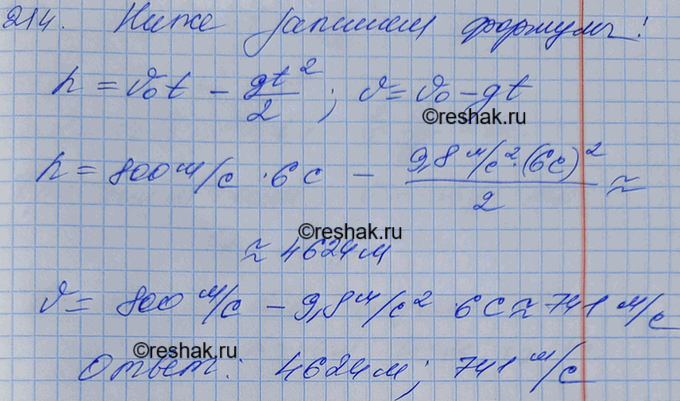 214. Ниже запишем формулы!
h = v₀t - gt²/2; v = v₀ - gt
©reshak.ru
h = 800 м/с · 6 с - 9,8 м/с² · (6с)²/2 ≈
©reshak.ru
≈ 4624 м
v = 800 м/с - 9,8 м/с² · 6 с ≈ 741 м/с
©reshak.ru
Ответ: 4624 м; 741 м/с